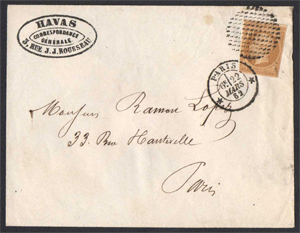 HAVAS
CORRESPONDANCE
GÉNÉRALE
3, RUE J. J. ROUSSEAU
PARIS
22
MARS
Monsieur Ramon Lopez
33 Rue Hauteville
Paris